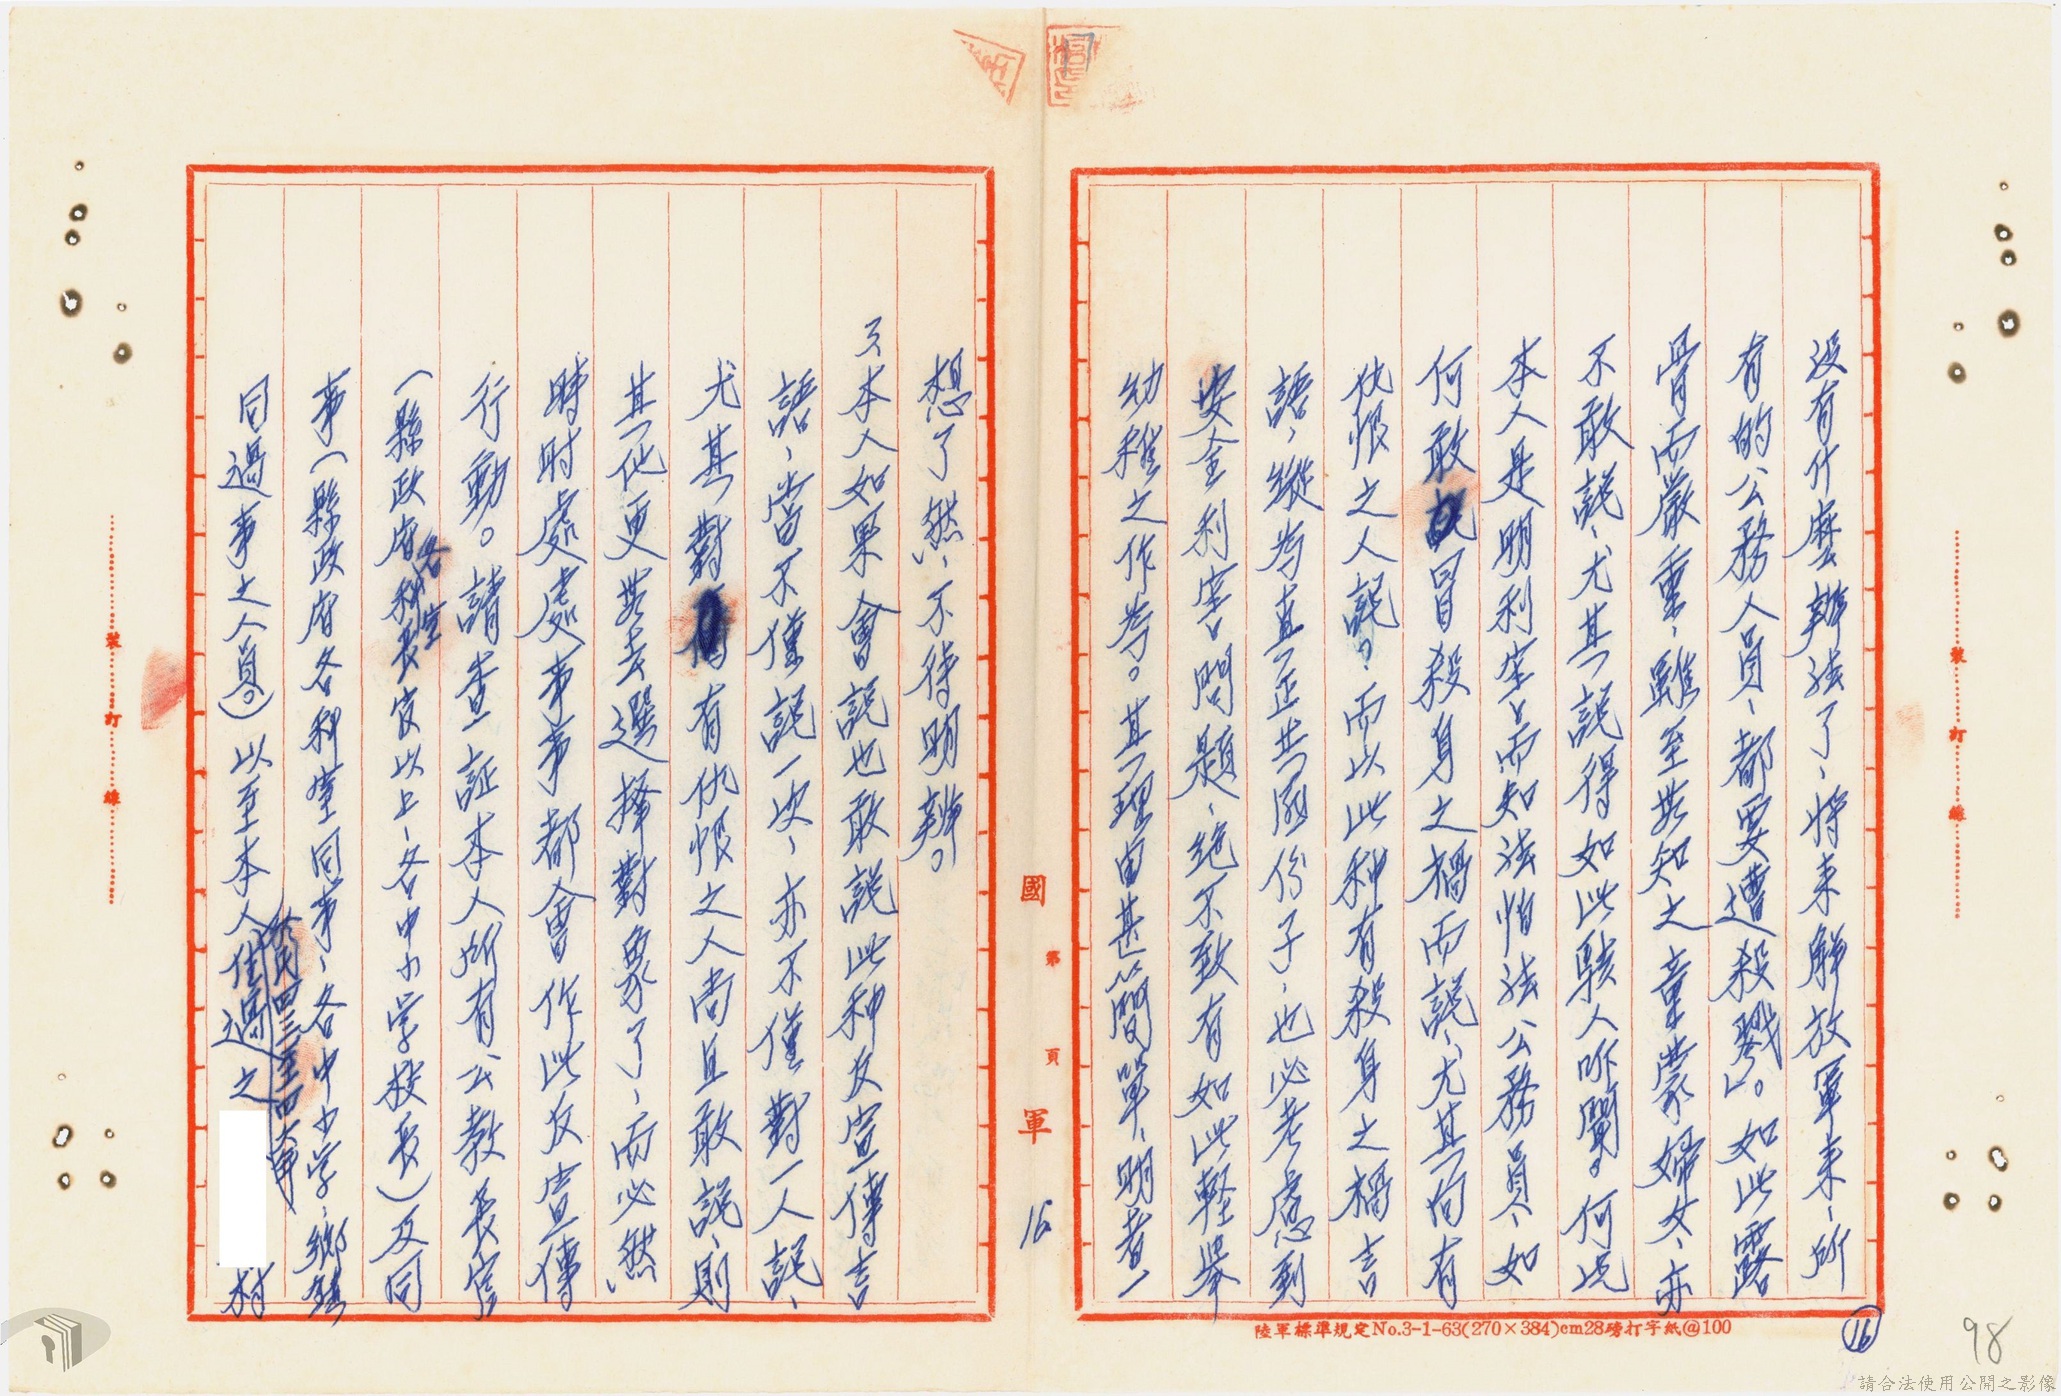 沒有什麼辦法了、將来解放軍来、所
有的公務人員、都要遭殺戮」。如此露
骨而嚴重、雖至無知之童蒙婦女、亦
不敢說、尤其說得如此駭人听聞。何况
本人是明利害而知法怕法公務員、如
何敢冒殺身之禍而說、尤其向有
仇恨之人說。而以此种有殺身之禍言
語、縱為真正共匪份子、也必考慮到
安全利害問題、絕不致有如此軽举
幼稚之作為。其理由甚簡單、明者一
想了然、不待明辨。
3、本人如果會說也敢說此种反宣傳言
語、當不僅說一次、亦不僅對一人說、
尤其對有仇恨之人尚且敢說、則
其他更無去選擇對象了、而必然
時时處處事事都會作此反宣傳
行動。請查証本人所有公教長官
(縣政府各科室長官以上、各中小学校長)及同
事(縣政府各科室同事、各中小学、鄉鎮
同過事之人員。)以至本人住過之
於民四三至四八年
村
國軍
第 頁
16
裝 訂 線
裝 訂 線
陸軍標準規定No.3-1-63(270×384)cm28磅打字紙@100
16
98
請合法使用公開之影像